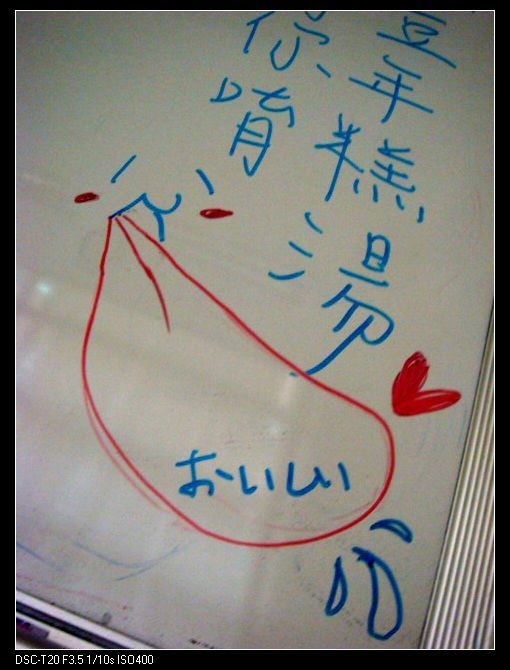 豆年糕湯
你啃
おいしい
DSC-T20 F3.5 1/10s ISO400